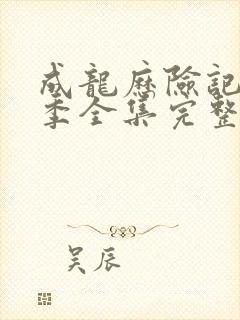 成龍歷險記
季全集完整
吴辰